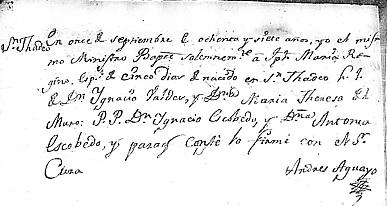 Sn Thadeo
En once de septiembre de ochenta y siete años, yo el mis-
mo Ministro Baptcé solemnemte. à Jph. Maria Re-
gino. Espl. de cinco dias de nacido en Sn. Thadeo h. l.
de Dn Ygnacio Valdes, y Dña Maria Theresa de
Muro: P. P. Dn Ygnacio Escobedo, y Dña Antonia
Escobedo, y paraq Conste lo firmé con el Sr.
Cura
Andres Aguayo